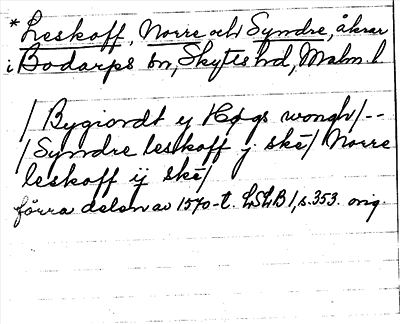 * Leskoff, Norre och Syndre, åkrar
i Bodarps sn, Skytts hd, Malm. l.
/ Bygiordt ej Høgs wongh/ --
/ Syndre leskoff j. skē/ Norre
leskoff ij skē/
förra delen av 1570-t. LSLB 1, s. 353. orig.